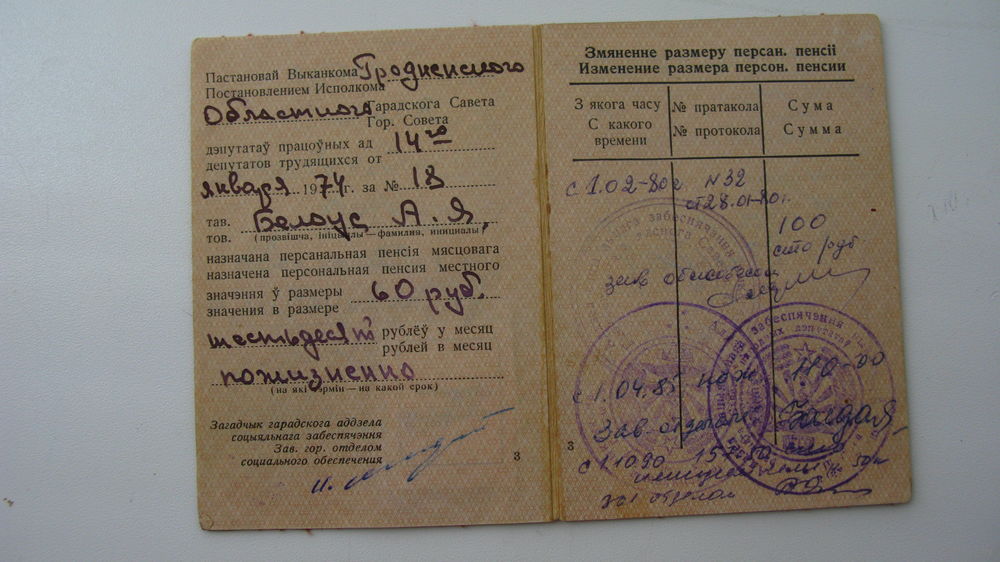 Пастановай Выканкома Гродненского
Постановлением Исполкома
Областного Гарадскога Савета
Гор. Совета
дэпутатаў працоўных ад 14го
депутатов трудящихся от
января 1974 г. за № 18
тав. Белоус А. Я.
тов. (прозвішча, ініцыялы—фамилия, инициалы)
назначана персанальная пенсія мясцовага
назначена персональная пенсия местного
значэння ў размеры 60 руб.
значения в размере
шестьдесят рублёў у месяц
рублей в месяц
пожизненно
(на які тэрмін—на какой срок)
Загадчык гарадскага аддзела
сацыяльнага забеспячэння
Зав. гор. отделом
социального обеспечения
3
Змяненне размеру персан. пенсіі
Изменение размера персон. пенсии
З якога часу № пратакола Сума
С какого № протокола Сумма
времени
с 1.02-80г N 32
от 28.01-80г.
100
сто руб
зав облсобесом
с 1.04.85 110-00
Зав. отделом
3
с 1.10.90
зав отделом